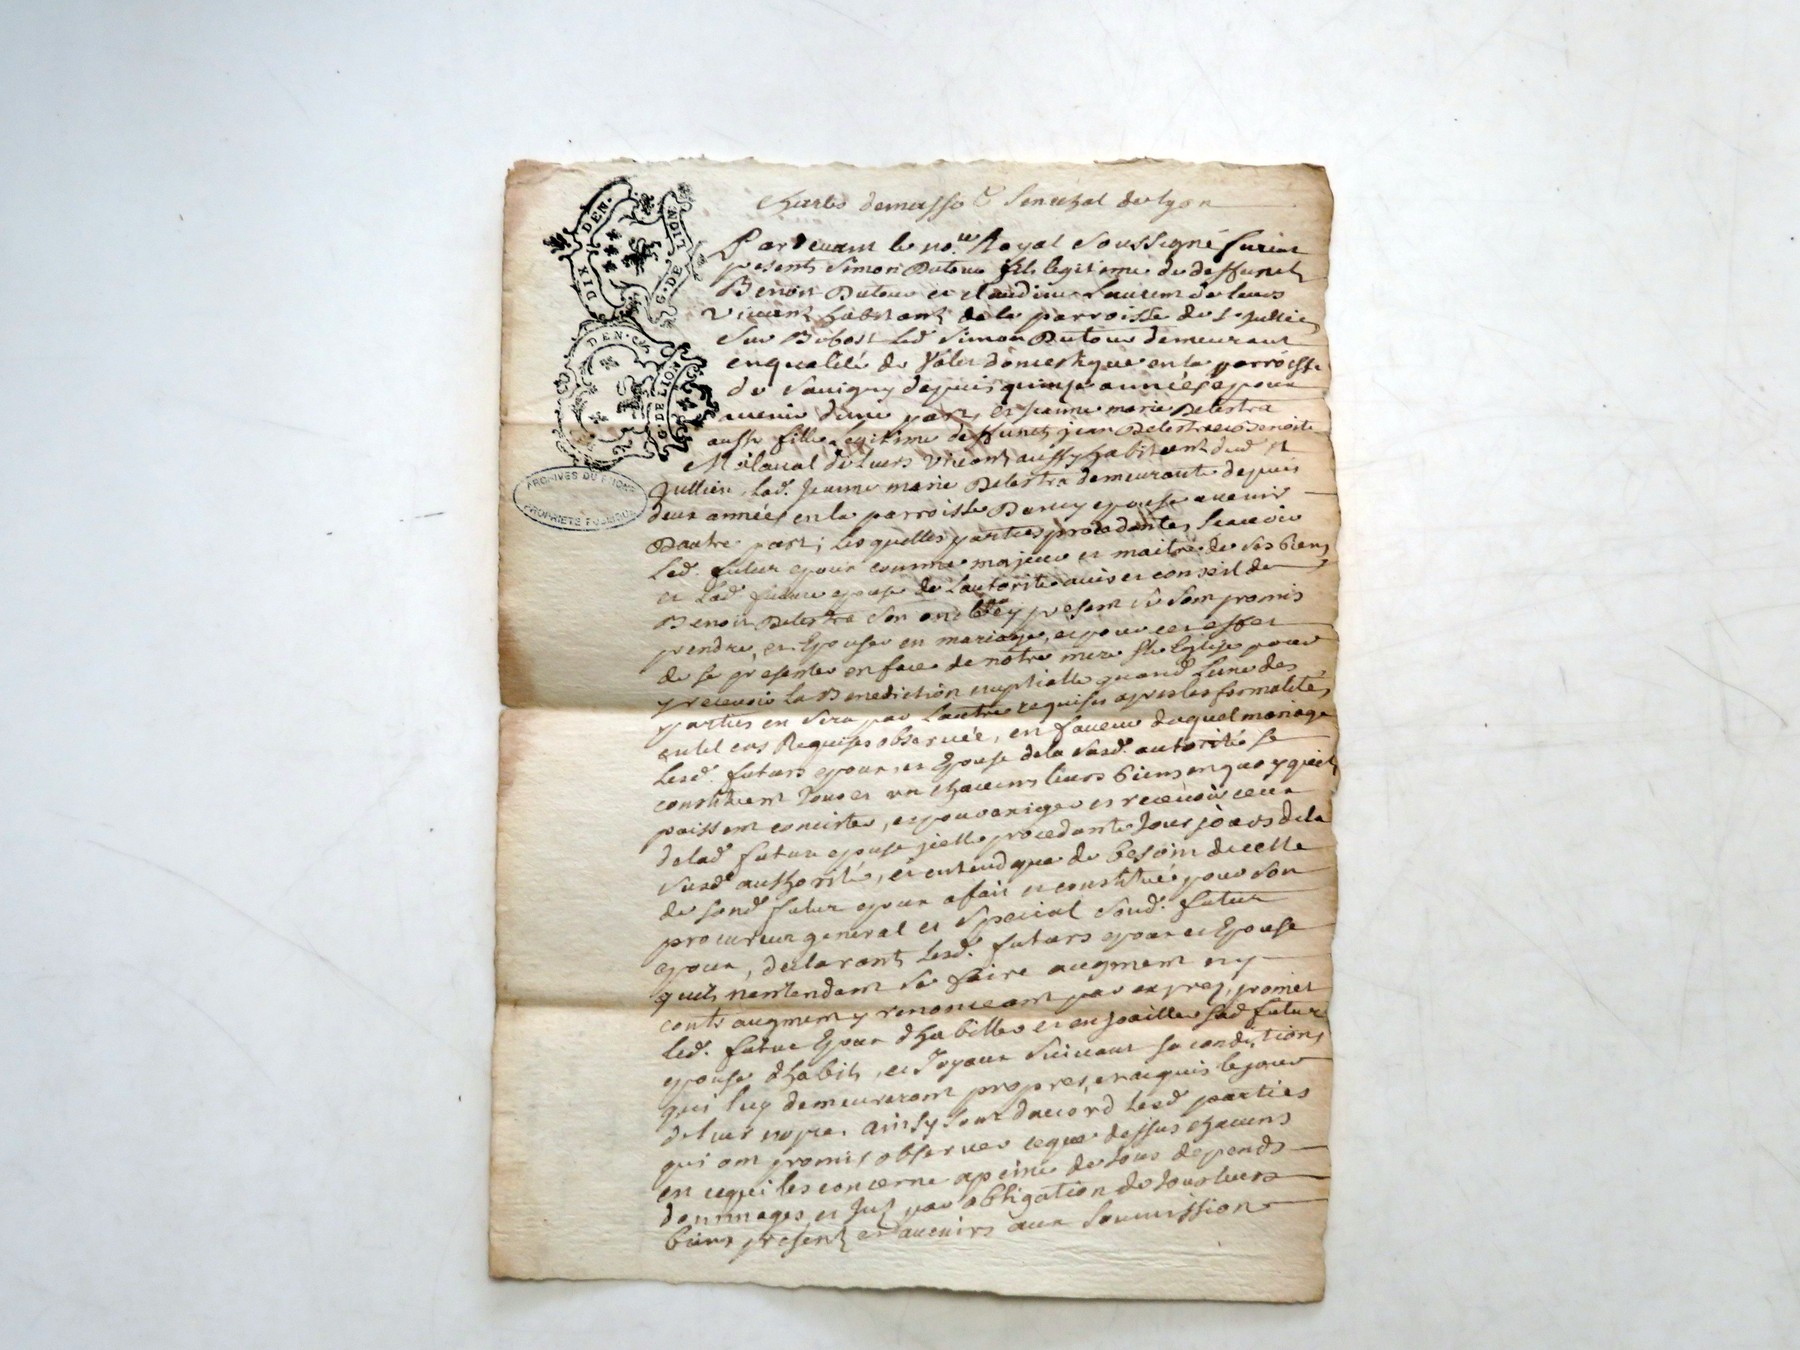 DIX DEN.
G. DE LION
DEN. C
G. DE LION
ARCHIVES DU RHONE
PROPRIÉTÉ PUBLIQUE
Charles demasso Senechal de lyon
Pardevant le no.re Royal Soussigné furent
presents Simon Dutour fils legitime de deffunct
Benoit Dutour et claudine Laurent de leurs
vivant habitants de la parroisse de St Jullien
Sur Bibost led. Simon Dutour demeurant
en qualité de Valet domestique en la parroisse
de Savigny depuis quinze années epoux
avenir dune part, et Jeanne marie Delestra
aussy fille legitime deffuncts jean Delestra et Benoite
de leurs vivant aussy habitant dud St
Jullien, lad. Jeanne marie Delestra demeurante depuis
deux années en la parroisse Dancy epouse avenir
Dautre part; lesquelles parties procedantes scavoir
led. futur epoux comme majeur et maitre de ses biens
et lad. future epouse de lautorité avis et conseil de
Benoit Delestra son oncle icy present se sont promis
prendre, et Epouser en mariage, et pour cet effet
de se presenter en face de notre mere Ste Eglise pour
y recevoir la Benediction nuptialle quand lune des
parties en sera par lautre requise apres les formalités
en tel cas Requises observées, en faveur duquel mariage
lesd. futurs epoux, et Epouse de la susd. autorité se
constituent tous et un chacuns leurs biens en quoy quils
puissent concister, et pour exiger et recevoir ceux
de lad. future epouse jcelle procedante toujours de la
susd. authorité, et entend que de besoin decelle
de sond. futur epoux a fait et constitué pour son
procureur general et special sond. futur
epoux, declarants lesd. futurs epoux et Epouse
quils nentendent se faire augment ny
contr augment y renonceant par exprez, promet
led. futur Epoux dhabiller et enjoailler sad. future
epouse dhabits, et Joyaux suivant sa condition
qui luy demeureront propres, et acquis le jour
de leur nopce. ainsy sont daccord lesd. parties
qui ont promis observer ce que dessus chacuns
en ce qui les concerne a peine de tous depends
dommages, et par obligation de tous leurs
biens presents et avenirs aux Soumissions